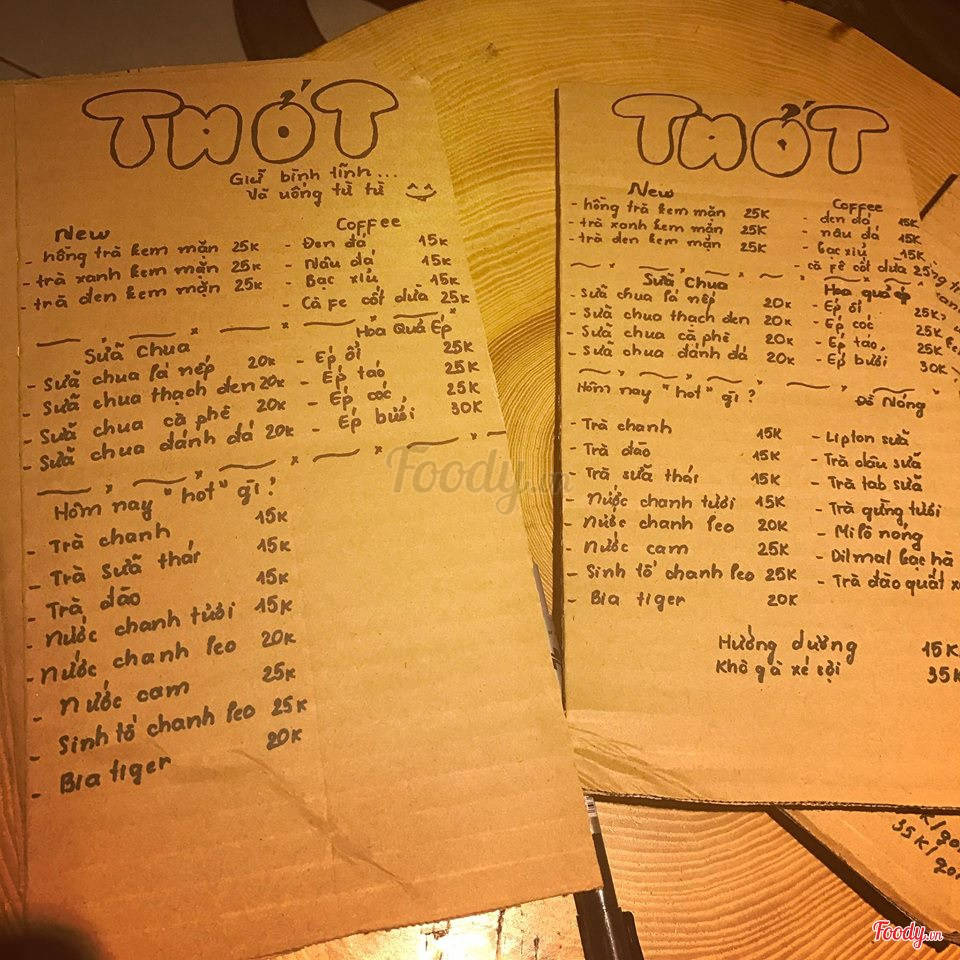 THỚT
Giữ bình tĩnh...
Và uống từ từ
New
- hồng trà kem mặn 25K
- trà xanh kem mặn 25K
- trà đen kem mặn 25K
Coffee
- Đen đá 15K
- Nâu đá 15K
- Bạc xỉu 15K
- Cà fe cốt dừa 25K
Sữa Chua
- Sữa chua lá nếp 20K
- Sữa chua thạch đen 20K
- Sữa chua cà phê 20K
- Sữa chua đánh đá 20K
Hoa Quả Ép
- Ép ổi 25K
- Ép táo 25K
- Ép cóc 25K
- Ép bưởi 30K
Hôm nay "hot" gì?
- Trà chanh 15K
- Trà sữa thái 15K
- Trà đào 15K
- Nước chanh tươi 15K
- Nước chanh leo 20K
- Nước cam 25K
- Sinh tố chanh leo 25K
- Bia tiger 20K
THỚT
New
- hồng trà kem mặn 25K
- trà xanh kem mặn 25K
- trà đen kem mặn 25K
Coffee
- đen đá 15K
- nâu đá 15K
- bạc xỉu 15K
- cà fê cốt dừa 25
Sữa Chua
- Sữa chua lá nếp 20K
- Sữa chua thạch đen 20K
- Sữa chua cà phê 20K
- Sữa chua đánh đá 20K
Hoa quả ép
- Ép ổi 25K
- Ép cóc 25K
- Ép táo 25K
- Ép bưởi 30K
Hôm nay "hot" gì?
- Trà chanh 15K
- Trà đào 15K
- Trà sữa thái 15K
- Nước chanh tươi 15K
- Nước chanh leo 20K
- Nước cam 25K
- Sinh tố chanh leo 25K
- Bia tiger 20K
Đồ Nóng
- Lipton sữa
- Trà dâu sữa
- Trà tab sữa
- Trà gừng tươi
- Milô nóng
- Dilmal bạc hà
- Trà đào quất
Hướng dương 15K
Khô gà xé sợi 35K
35K/
Foody.vn
Foody.vn